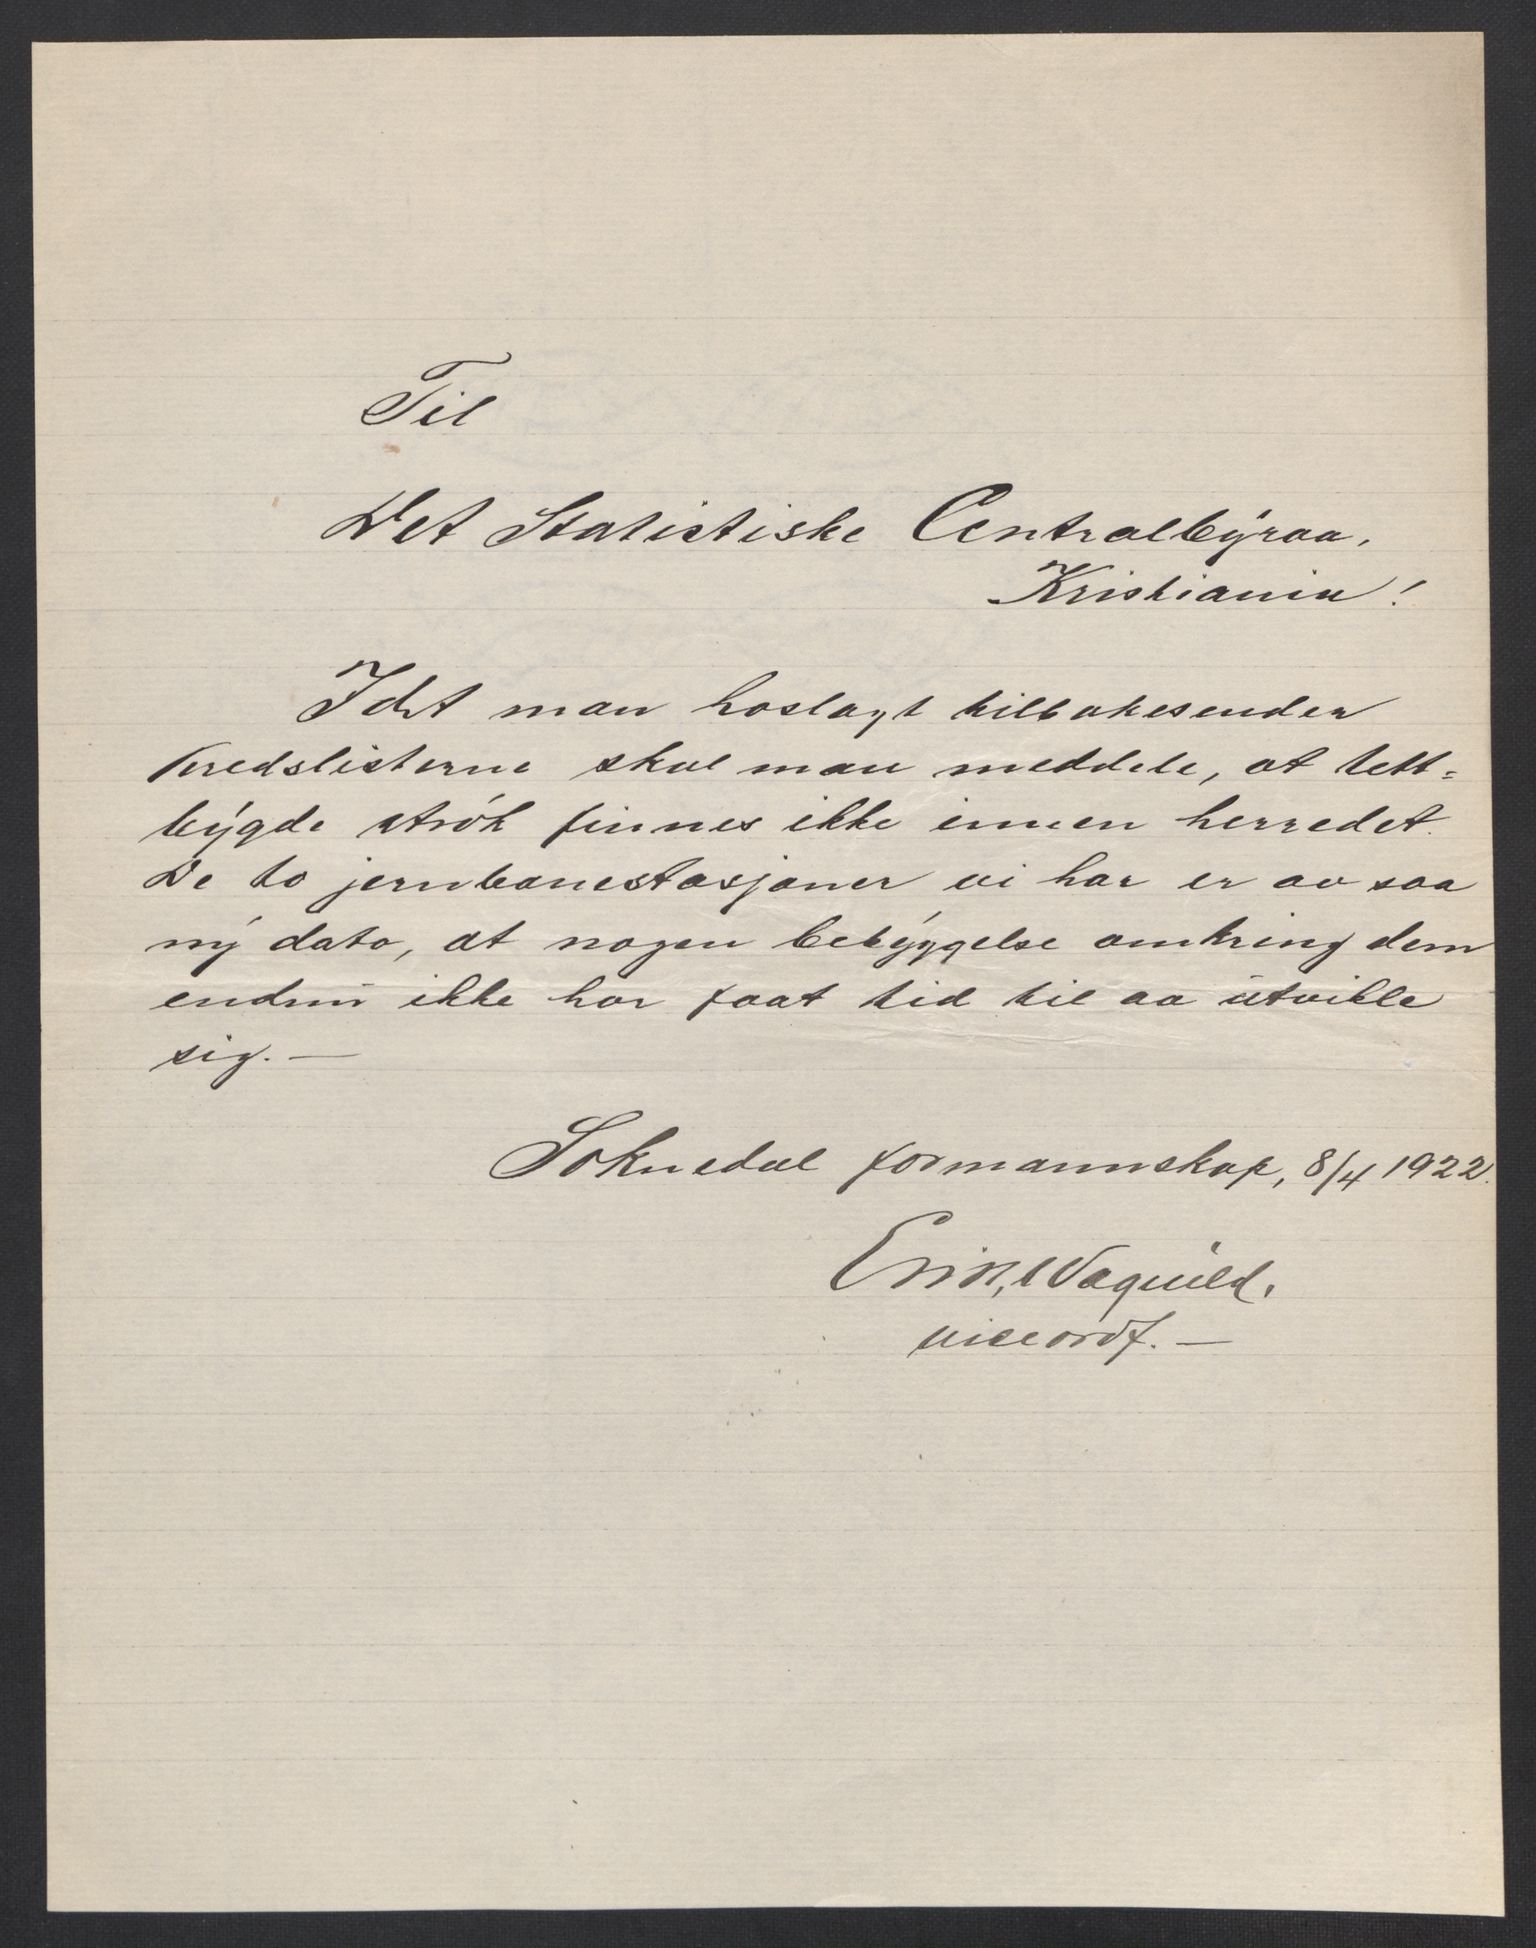 Til
Det Statistiske Centralbyraa,
Kristiania!
Idet man hoslagt tilbakesender
kredslisterne skal man meddele, at tett-
bygde strøk finnes ikke innen herredet.
De to jernbanestasjoner vi har er av saa
ny dato, at nogen bebyggelse omkring dem
endnu ikke har faat tid til aa utvikle
sig. —
Soknedal formannskap, 8/4 1922.
Erik Vagnild.
viceordf. —